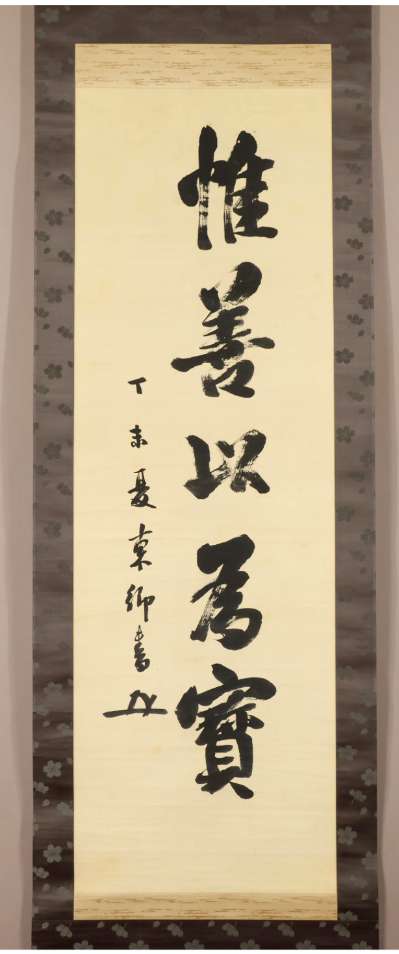 惟善以為寶
丁未夏東郷書